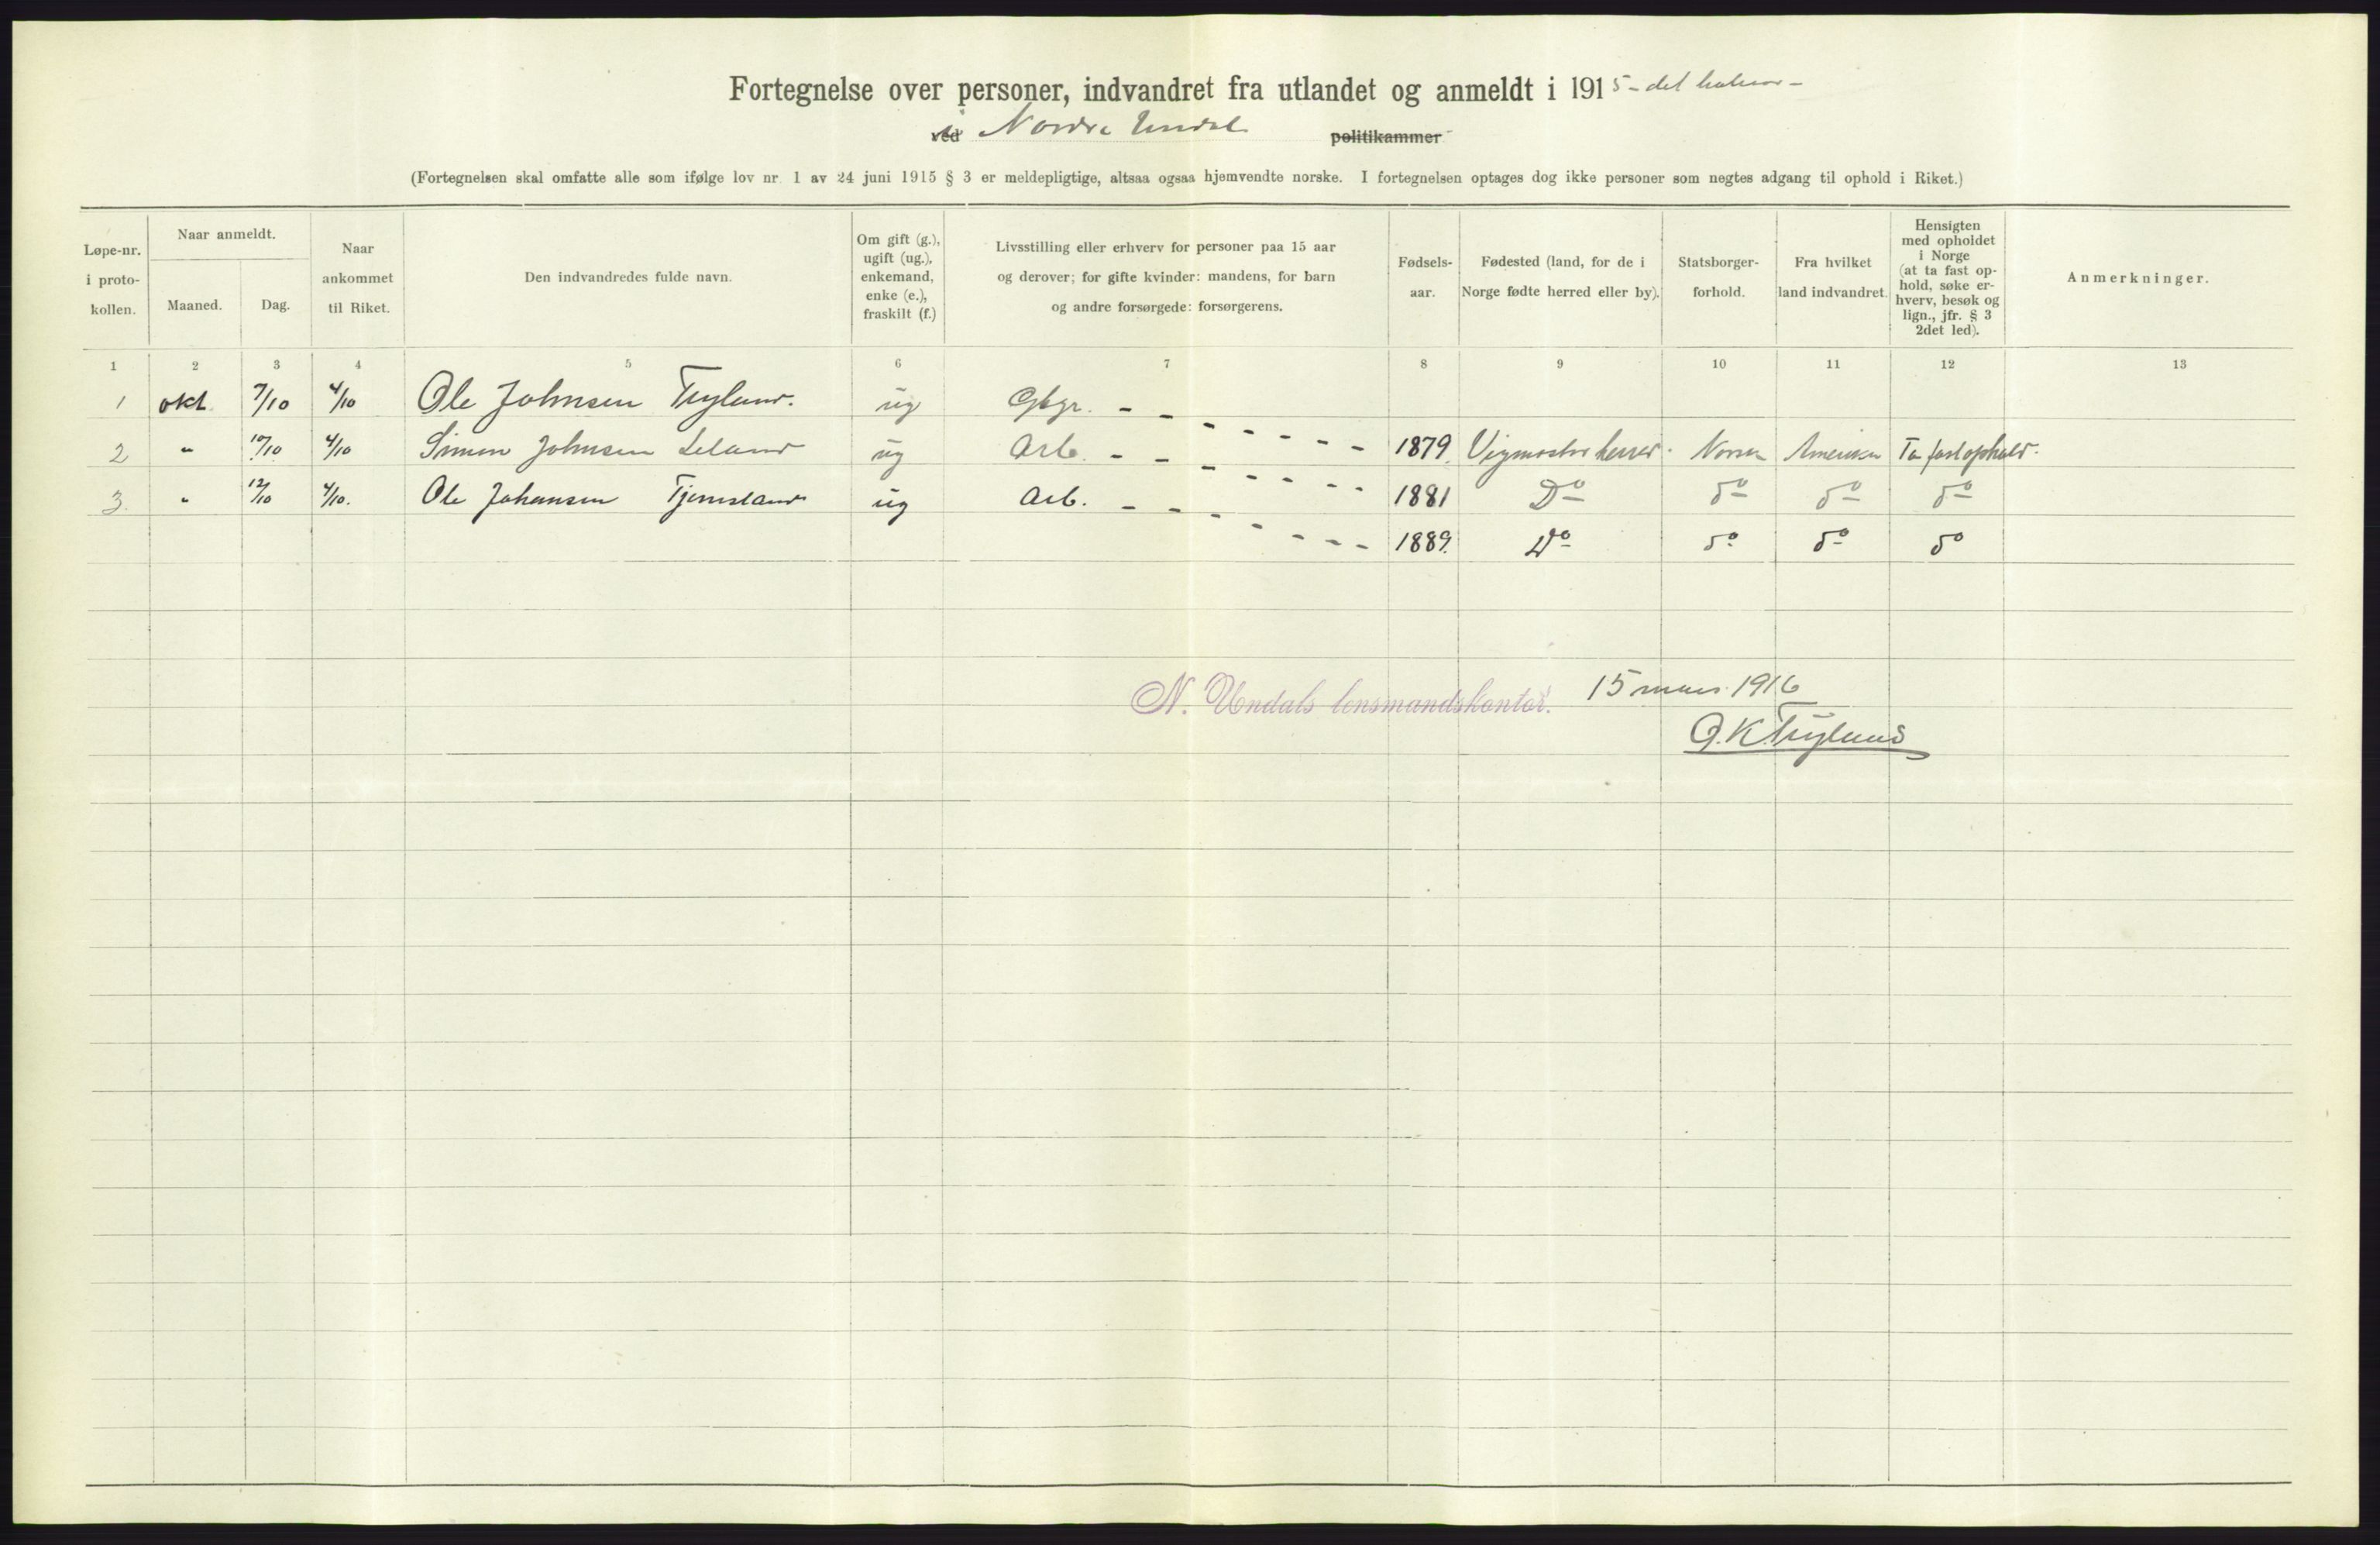 Fortegnelse over personer, indvandret fra utlandet og anmeldt i 1915 - det
ved i Nordre Undal politikammer
(Fortegnelsen skal omfatte alle som ifølge lov nr. 1 av 24 juni 1915 § 3 er meldepligtige, altsaa ogsaa hjemvendte norske. I fortegnelsen optages dog ikke personer som negtes adgang til ophold i Riket.)
Løpe-nr. i proto-kollen.
Naar anmeldt.
Maaned.
Dag.
Naar ankommet til Riket.
Den indvandredes fulde navn.
Om gift (g.), ugift (ug.), enkemand, enke (e.), fraskilt (f.)
Livsstilling eller erhverv for personer paa 15 aar og derover; for gifte kvinder: mandens, for barn og andre forsørgede: forsørgerens.
Fødsels-aar.
Fødested (land, for de i Norge fødte herred eller by).
Statsborger-forhold.
Fra hvilket land indvandret.
Hensigten med opholdet i Norge (at ta fast op-hold, søke er-hverv, besøk og lign., jfr. § 3 2det led).
Anmerkninger.
1 2 3 4 5 6 7 8 9 10 11 12 13
1 okt. 7/10 4/10 Ole Johnsen Tryland. ug Gbgr. - -
2 " 10/10 4/10 Simon Johnsen Leland ug Arb. - - 1879. Vigmostad herred. Norsk Amerika Ta fast ophold.
3. " 12/10 4/10. Ole Johansen Tjomsland ug Arb. - - 1881 Do do do do
1889. Do do do do
N. Undals lensmandskontor. 15 mars 1916
O.K. Tryland